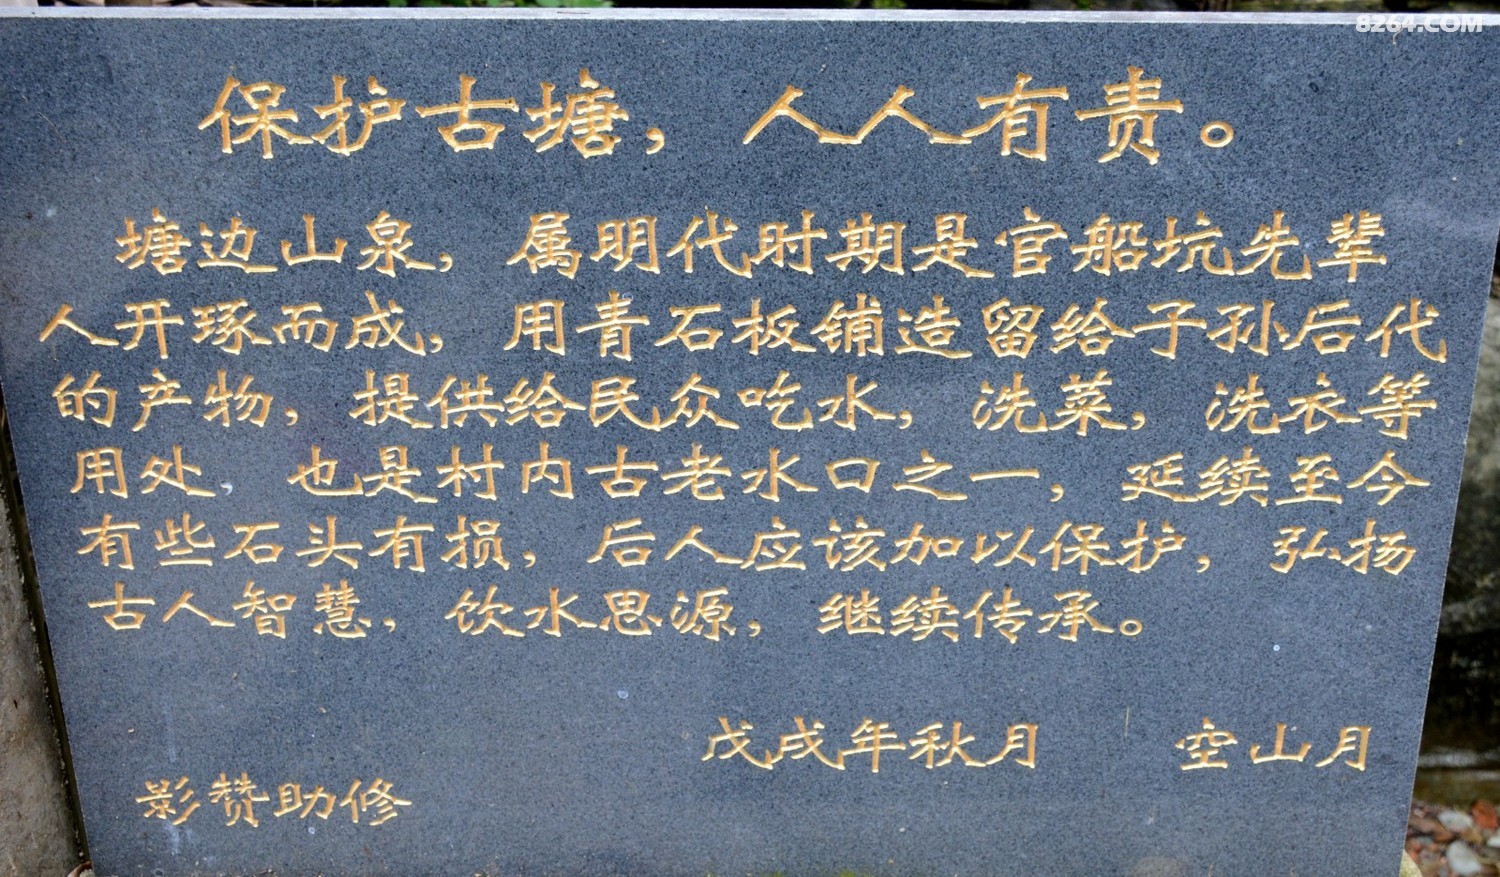 8264.COM
保护古塘，人人有责。
塘边山泉，属明代时期是官船坑先辈
人开琢而成，用青石板铺造留给子孙后代
的产物，提供给民众吃水，洗菜，洗衣等
用处，也是村内古老水口之一，延续至今
有些石头有损，后人应该加以保护，弘扬
古人智慧，饮水思源，继续传承。
戊戌年秋月 空山月
影赞助修